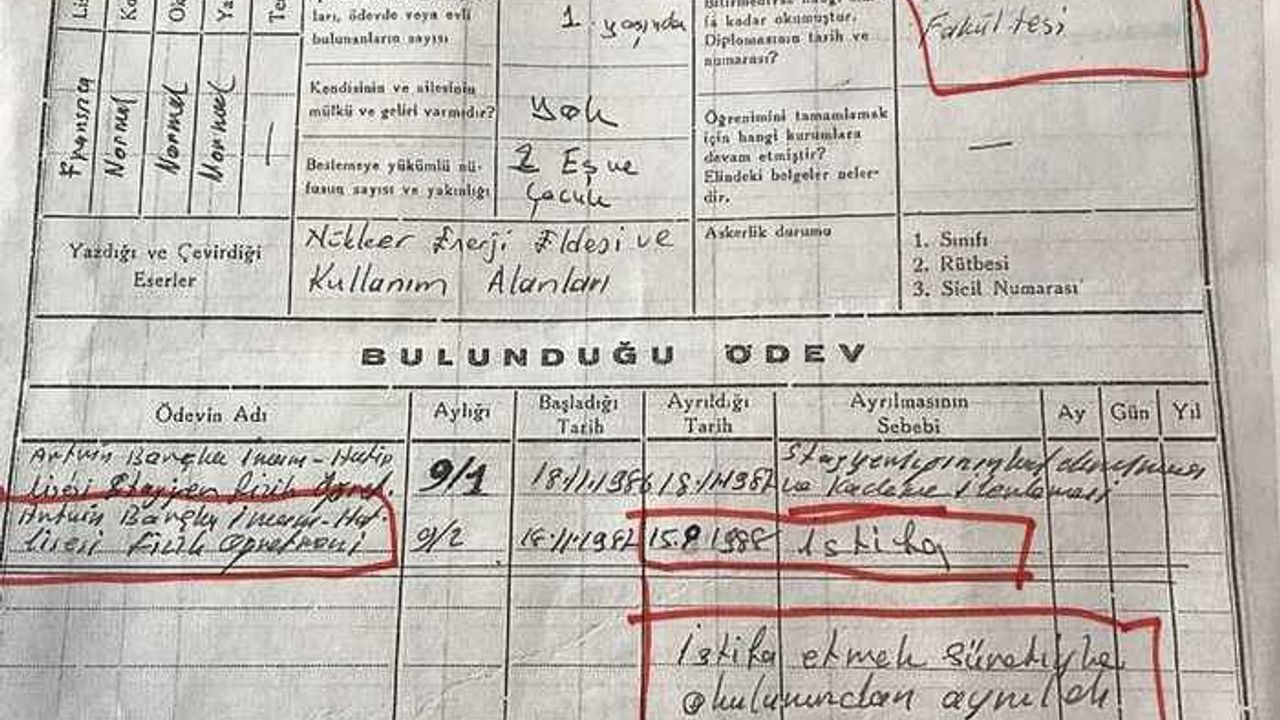 Li
Ko
Ok
Ya
Te
Fransızca
Normel
Normel
Normel
—
ları, ödevde veya evli
bulunanların sayısı
1. yaşında
Bitirmedi ise hangi
fa kadar okumuştur.
Diplomasının tarih ve
numarası?
Fakültesi
Kendisinin ve ailesinin
mülkü ve geliri varmıdır?
Yok
Öğrenimini tamamlamak
için hangi kurumlara
devam etmiştir?
Elindeki belgeler neler-
dir.
—
Beslemeye yükümlü nü-
fusun sayısı ve yakınlığı
2 Eş ve
Çocuk
Yazdığı ve Çevirdiği
Eserler
Nükleer Enerji Eldesi ve
Kullanım Alanları
Askerlik durumu
1. Sınıfı
2. Rütbesi
3. Sicil Numarası
BULUNDUĞU ÖDEV
Ödevin Adı
Aylığı
Başladığı
Tarih
Ayrıldığı
Tarih
Ayrılmasının
Sebebi
Ay
Gün
Yil
Artvin Borçka İmam-Hatip
Lisesi Stajyer Fizik Öğret.
9/1
18.11.1986
18.11.1987
ve Kademe ilerlemesi
Artvin Borçka İmam-Hat.
Lisesi Fizik Öğretmeni
9/2
18.11.1987
15.9.1988
istifa
İstifa etmek süretiyle
okulumundan ayrıldı